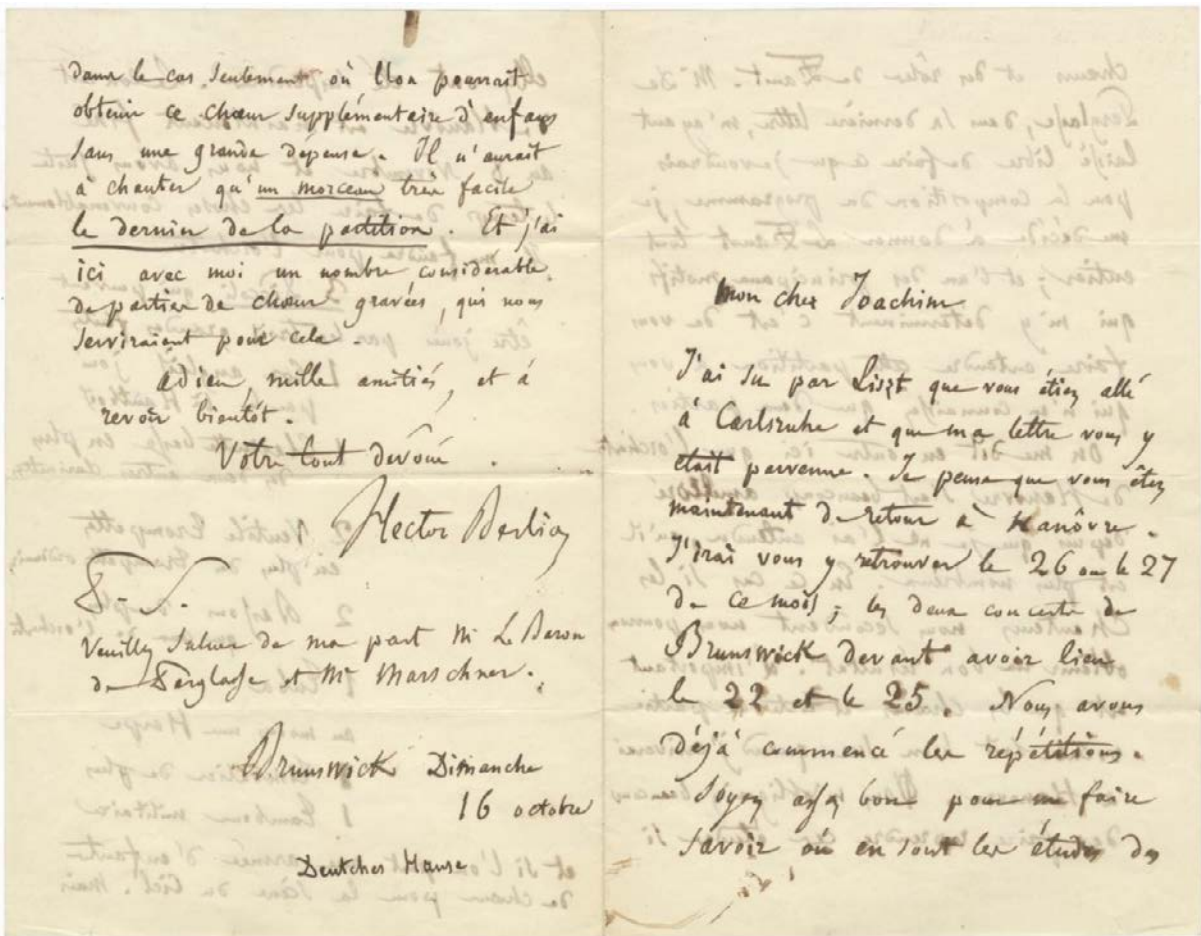 dans le cas seulement où l'on pourrait
obtenir ce chœur supplémentaire d'enfans
sans une grande depense. Il n'aurait
à chanter qu'un morceau très facile
le dernier de la partition. Et j'ai
ici avec moi un nombre considérable
de parties de chœur gravées, qui nous
serviraient pour cela.
adieu, mille amitiés, et à
revoir bientôt.
Votre tout dévoué.
Hector Berlioz
P. S.
Veuillez saluer de ma part Mr Le Baron
de Perglasse et Mr Marschner.
Brunswick Dimanche
16 octobre
Deutches Hause
Mon cher Joachim
J'ai su par Liszt que vous étiez allé
à Carlsruhe et que ma lettre vous y
était parvenue. Je pense que vous êtes
maintenant de retour à Hanôvre.
J'irai vous y retrouver le 26 ou le 27
de ce mois; les deux concerts de
Brunswick devant avoir lieu
le 22 et le 25. Nous avons
déjà commencé les répétitions.
Soyez assez bon pour me faire
savoir où en sont les études des